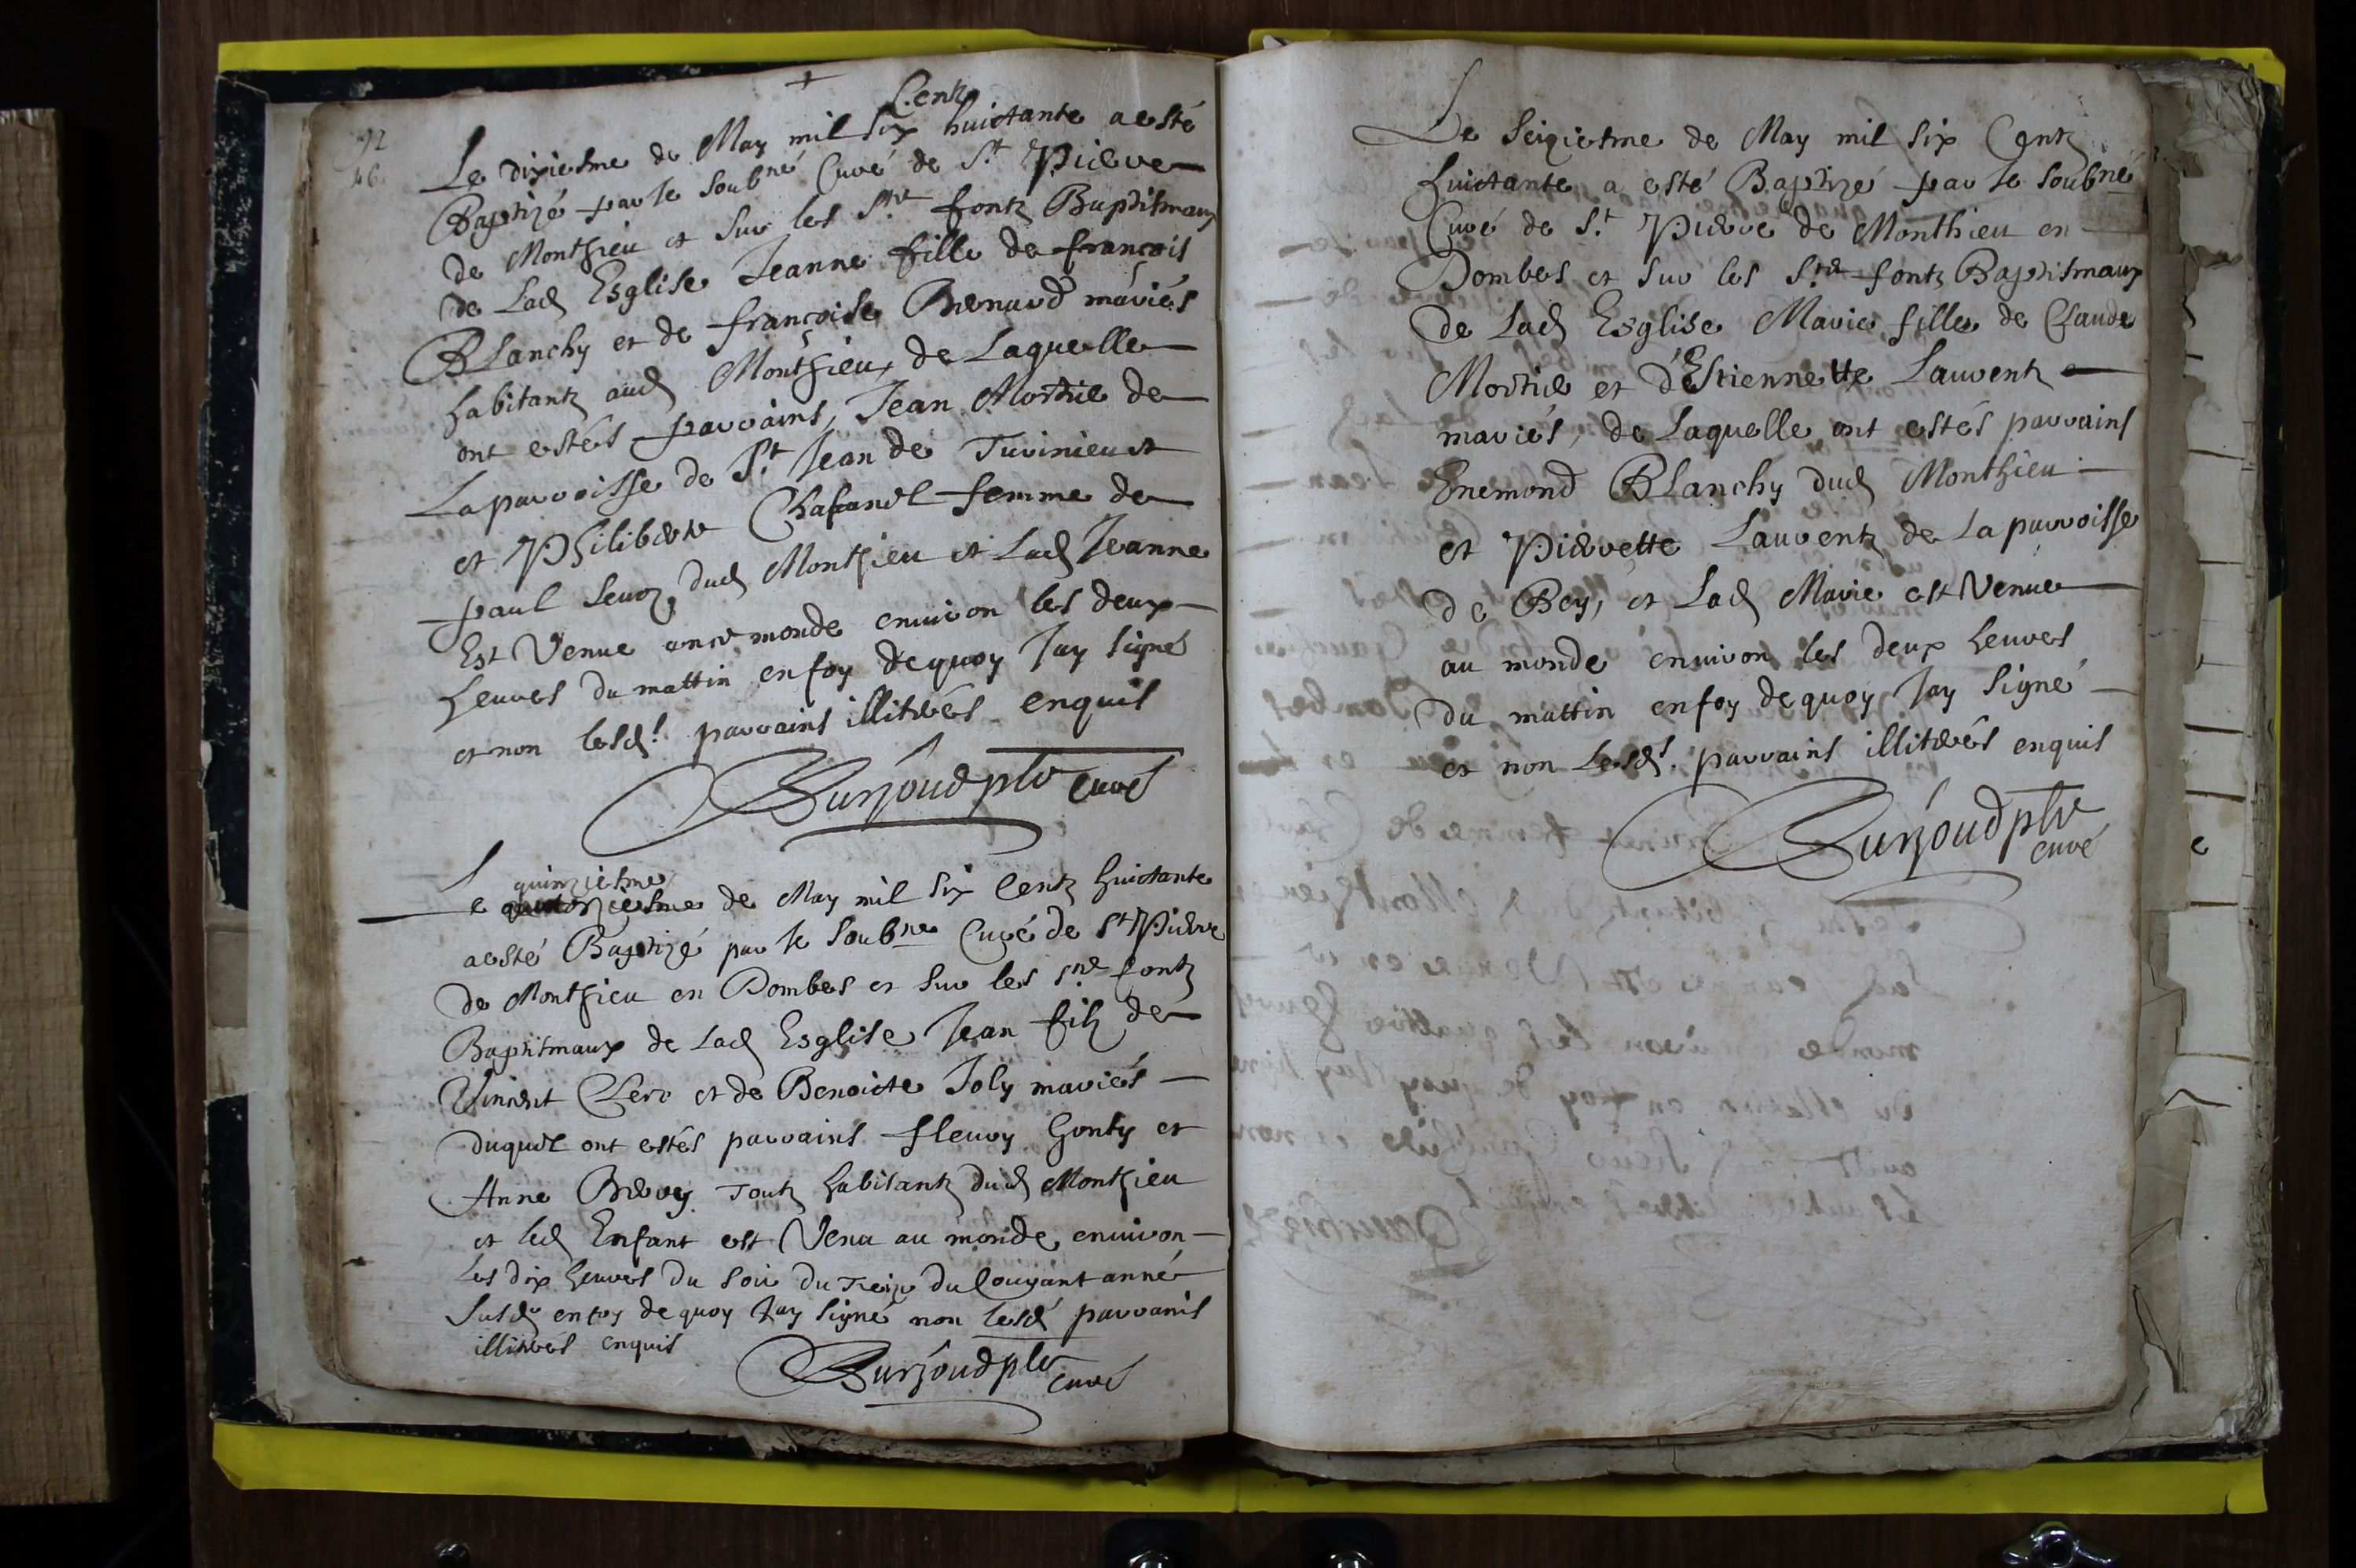 92
46
+
Centz
Le dixiesme de May mil six huictante a esté
Baptizé par le soubné Curé de St Pierre
de Monthieu et sur les Sts fontz Baptismaux
de Lad Esglise Jeanne fille de françois
BLanchy et de françoise Brenard mariés
habitantz aud Monthieu, de Laquelle
ont estés parrains, Jean Mortie de
La parroisse de St Jean de Turinieu et
et Philiberte Chafanel femme de
paul Sevoz dud Monthieu et Lad Jeanne
Est Venue au monde environ les deux
heures du mattin en foy de quoy Jay signé
et non lesds. parrains illiterés enquis
Burjoud pbr Curé
quinziesme
Le quatorziesme de May mil six Centz huictante
a esté Baptizé par le soubne Curé de St Pierre
de Monthieu en Dombes et sur les Sts fontz
Baptismaux de Lad Esglise Jean filz de
Vincent Clerc et de Benoicte Joly mariés
duquel ont estés parrains fleury Gonty et
Anne Brevey Toutz habitantz dud Monthieu
et led Enfant est Venu au monde environ
les dix heures du soir du Treize du Courant année
susde en foy de quoy Jay signé non lesd parrains
illiterés enquis
Burjoud pbr
curé
Le Seiziesme de May mil six Centz
huictante a esté Baptizé par le soubné
Curé de St Pierre de Monthieu en
Dombes et sur les Sts fontz Baptismaux
de Lad Esglise Marie fille de Claude
Mortie et d'Estiennette Laurentz
mariés, de Laquelle ont estés parrains
Enemond BLanchy dud Monthieu
et Pierrette Laurentz de La parroisse
de Bey, et Lad Marie est Venue
au monde environ les deux heures
du mattin en foy de quoy Jay signé
et non Lesds. parrains illiterés enquis
Burjoud pbr
curé